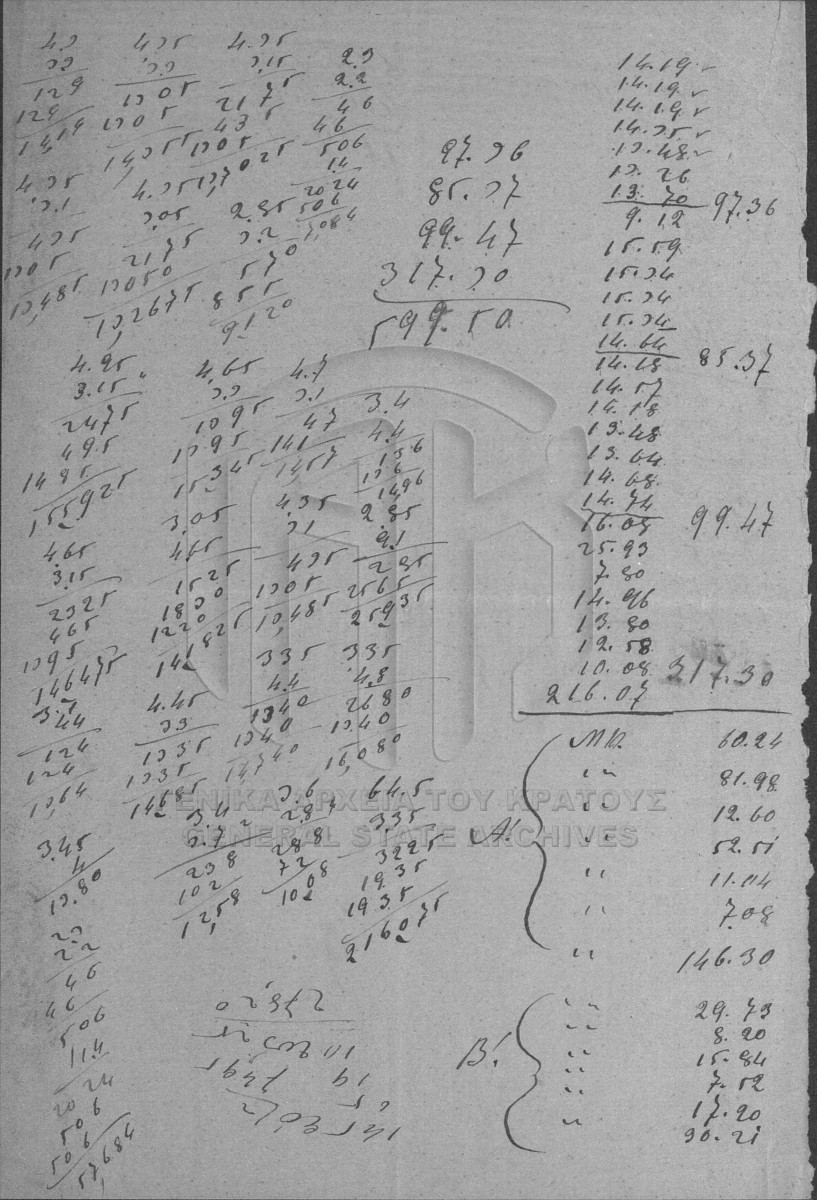 4.3 4.35 4.35 2.3
33 3.3 3.15 2.2
129 1305 2175 46
129 1305 435 46
14,19 14,355 1305 506
13,7025 1.4
2024
506
7,084
4.35 4.35 2.85
3.1 3.05 3.2
435 2175 570
1305 13050 855
13,485 13,2675 9,120
97.36
85.37
99.47
317.30
599.50
14.19
14.19
14.19
14.35
13.48
13.26
13.70 97.36
9.12
15.59
15.34
15.34
15.34
14.64 85.37
14.18
14.57
14.18
13.48
13.64
14.68
14.74 99.47
16.08
25.93
7.80
14.96
13.80
12.58
10.08 317.30
216.07
4.95 4,65 4.7 3.4
3.15 3.3 3.1 4.4
2475 1395 47 136
495 1395 141 136
1485 15,345 14,57 14,96
15,5925
4.65 3.05 4.35 2.85
3.15 4.65 3.1 9.1
2325 1525 435 285
465 1830 1305 2565
1395 1220 13,485 25,935
14,6475 14,1825
3.1 4.45 335 335
44 33 4.4 4.8
124 1335 1340 2680
124 1335 1340 1340
13,64 14,685 14,740 16,080
3.45 3.4 3.6 64.5
4 3.7 2.8 335
13.80 238 288 3225
102 72 1935
12,58 10,08 1935
216,075
23
22
46
46
506
11.4
2024
506
506
57,684
ΓΕΝΙΚΑ ΑΡΧΕΙΑ ΤΟΥ ΚΡΑΤΟΥΣ
GENERAL STATE ARCHIVES
Α!
60.24
" 81.98
" 12.60
" 52.51
" 11.04
" 7.08
" 146.30
Β!
" 29.73
" 8.20
" 15.84
" 7.52
" 17.20
" 30.21